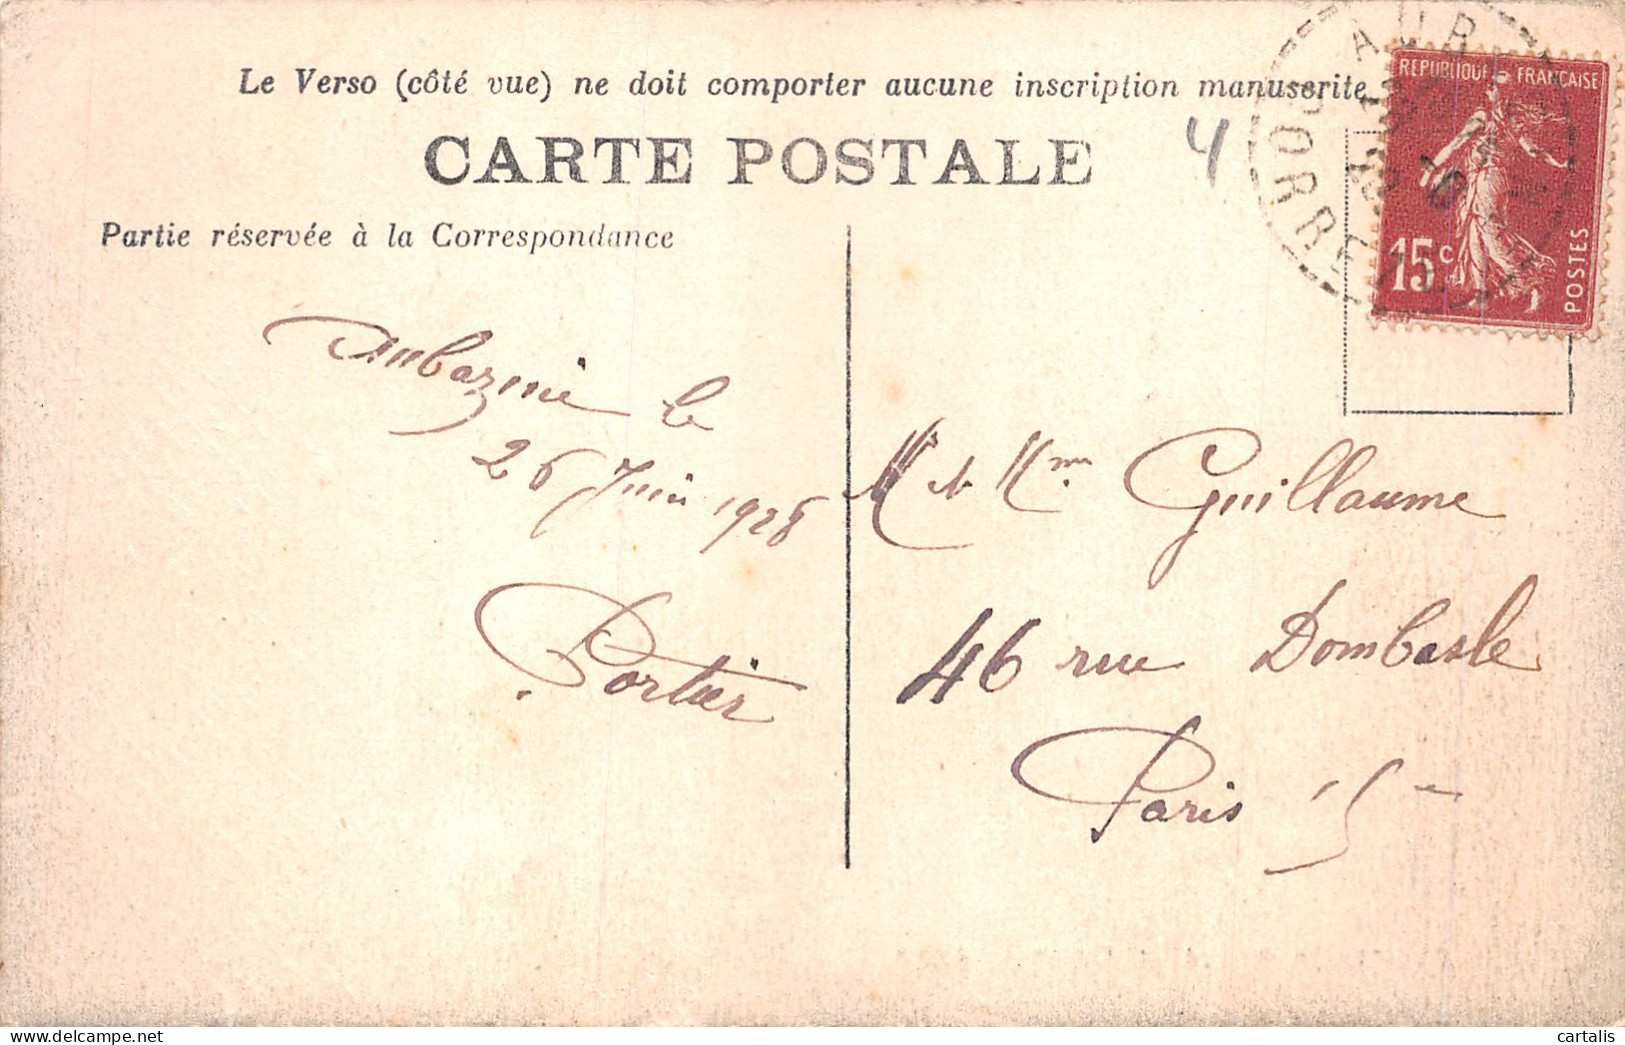 Le Verso (côté vue) ne doit comporter aucune inscription manuscrite
CARTE POSTALE
4
Partie réservée à la Correspondance
RÉPUBLIQUE FRANÇAISE
15c
POSTES
CORRÈZE
Aubazine le
26 Juin 1928
Portier
M et Mme Guillaume
46 rue Dombasle
Paris 15e
cartalis